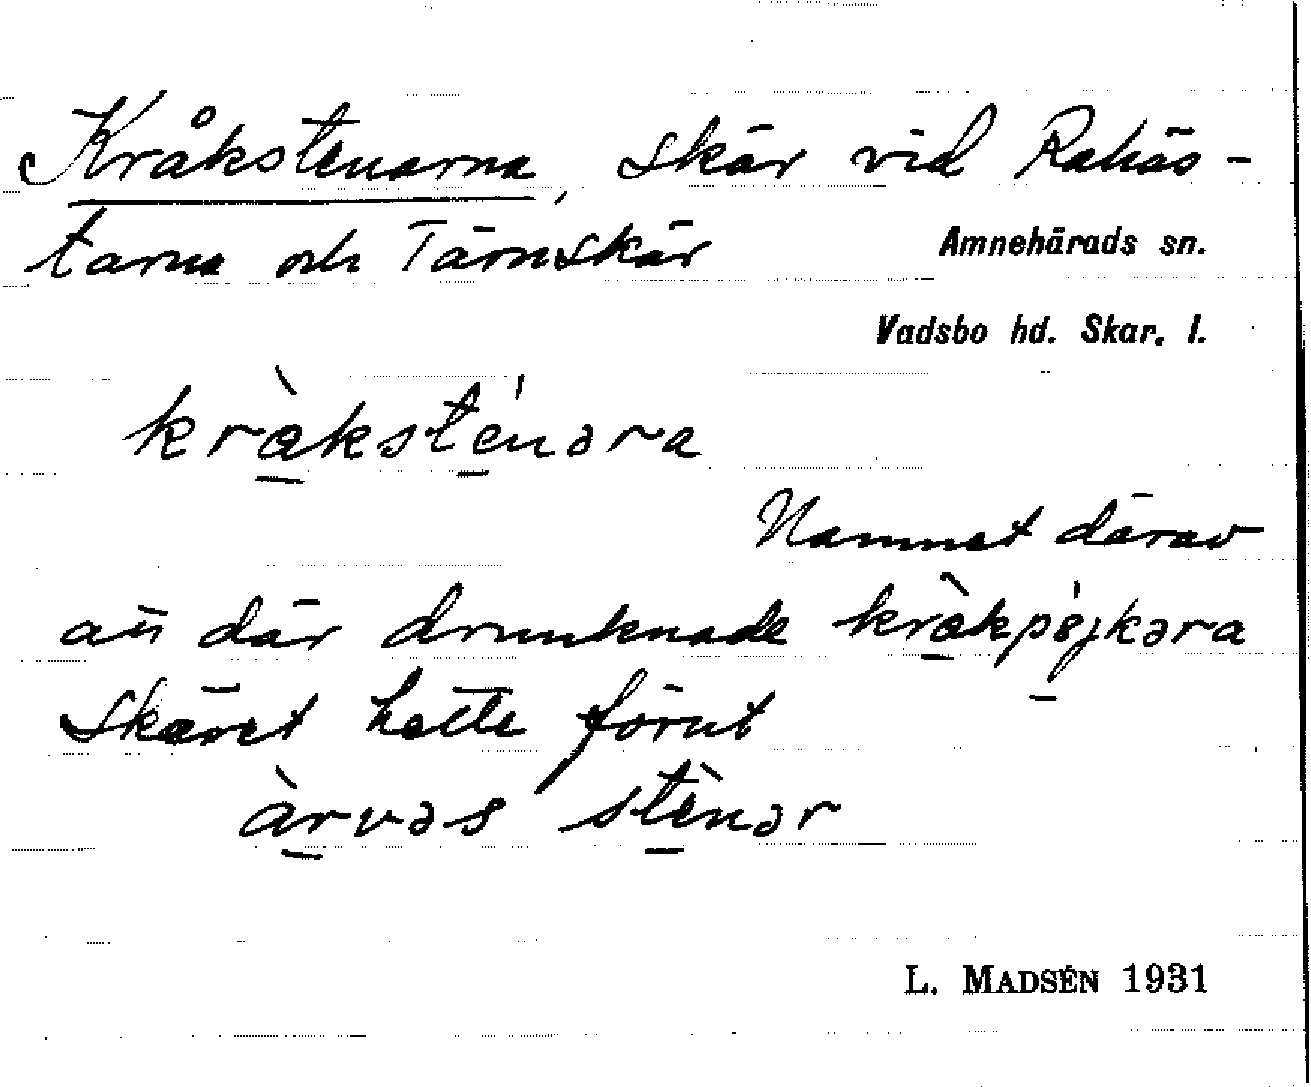 Kråkstenarna, skär vid Rahäs-
tarna och Tärnskär
Amnehärads sn.
Vadsbo hd. Skar. l.
kràksténəra
Namnet därav
att där drunknade kràkpöjkəra
Skäret hette förut
àrvəs stènər
L. MADSÉN 1931